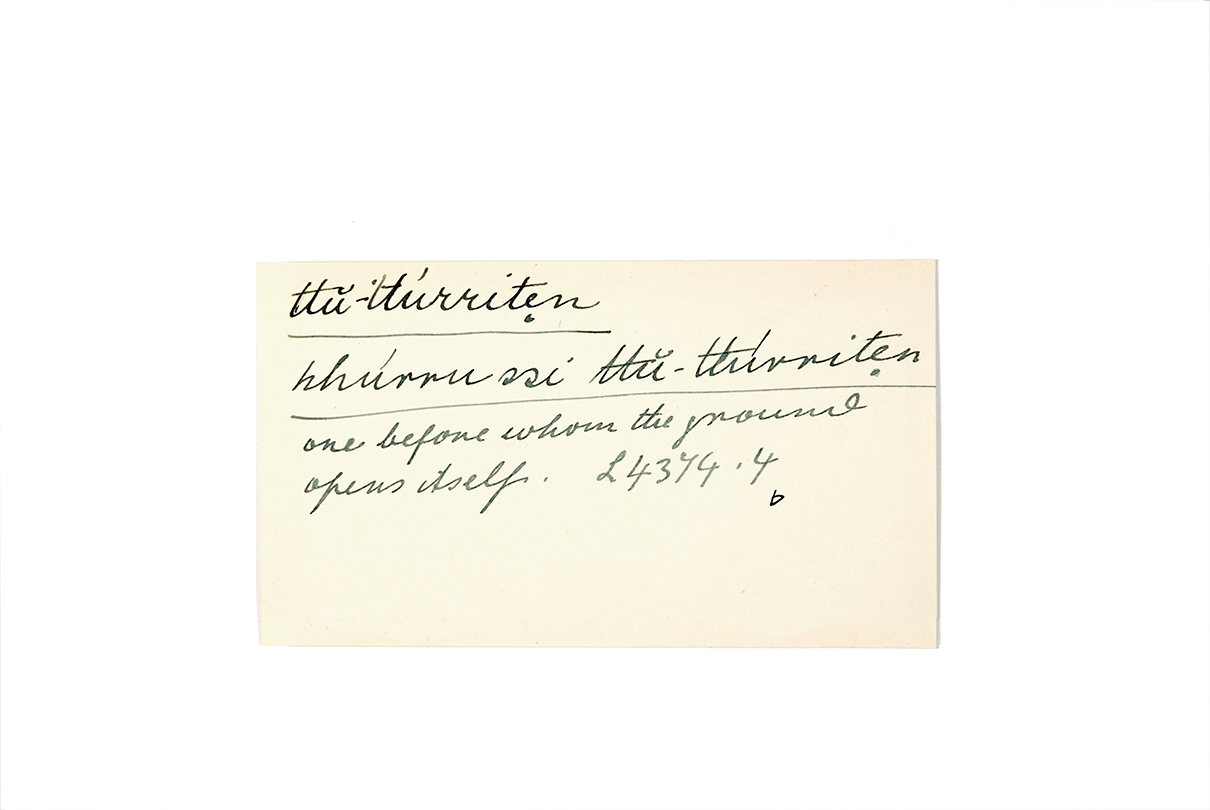 ttŭ-ttúrritẹn
ḱhúrru ssi ttŭ-ttúrritẹn
one before whom the ground
opens itself. L 4374.4
b